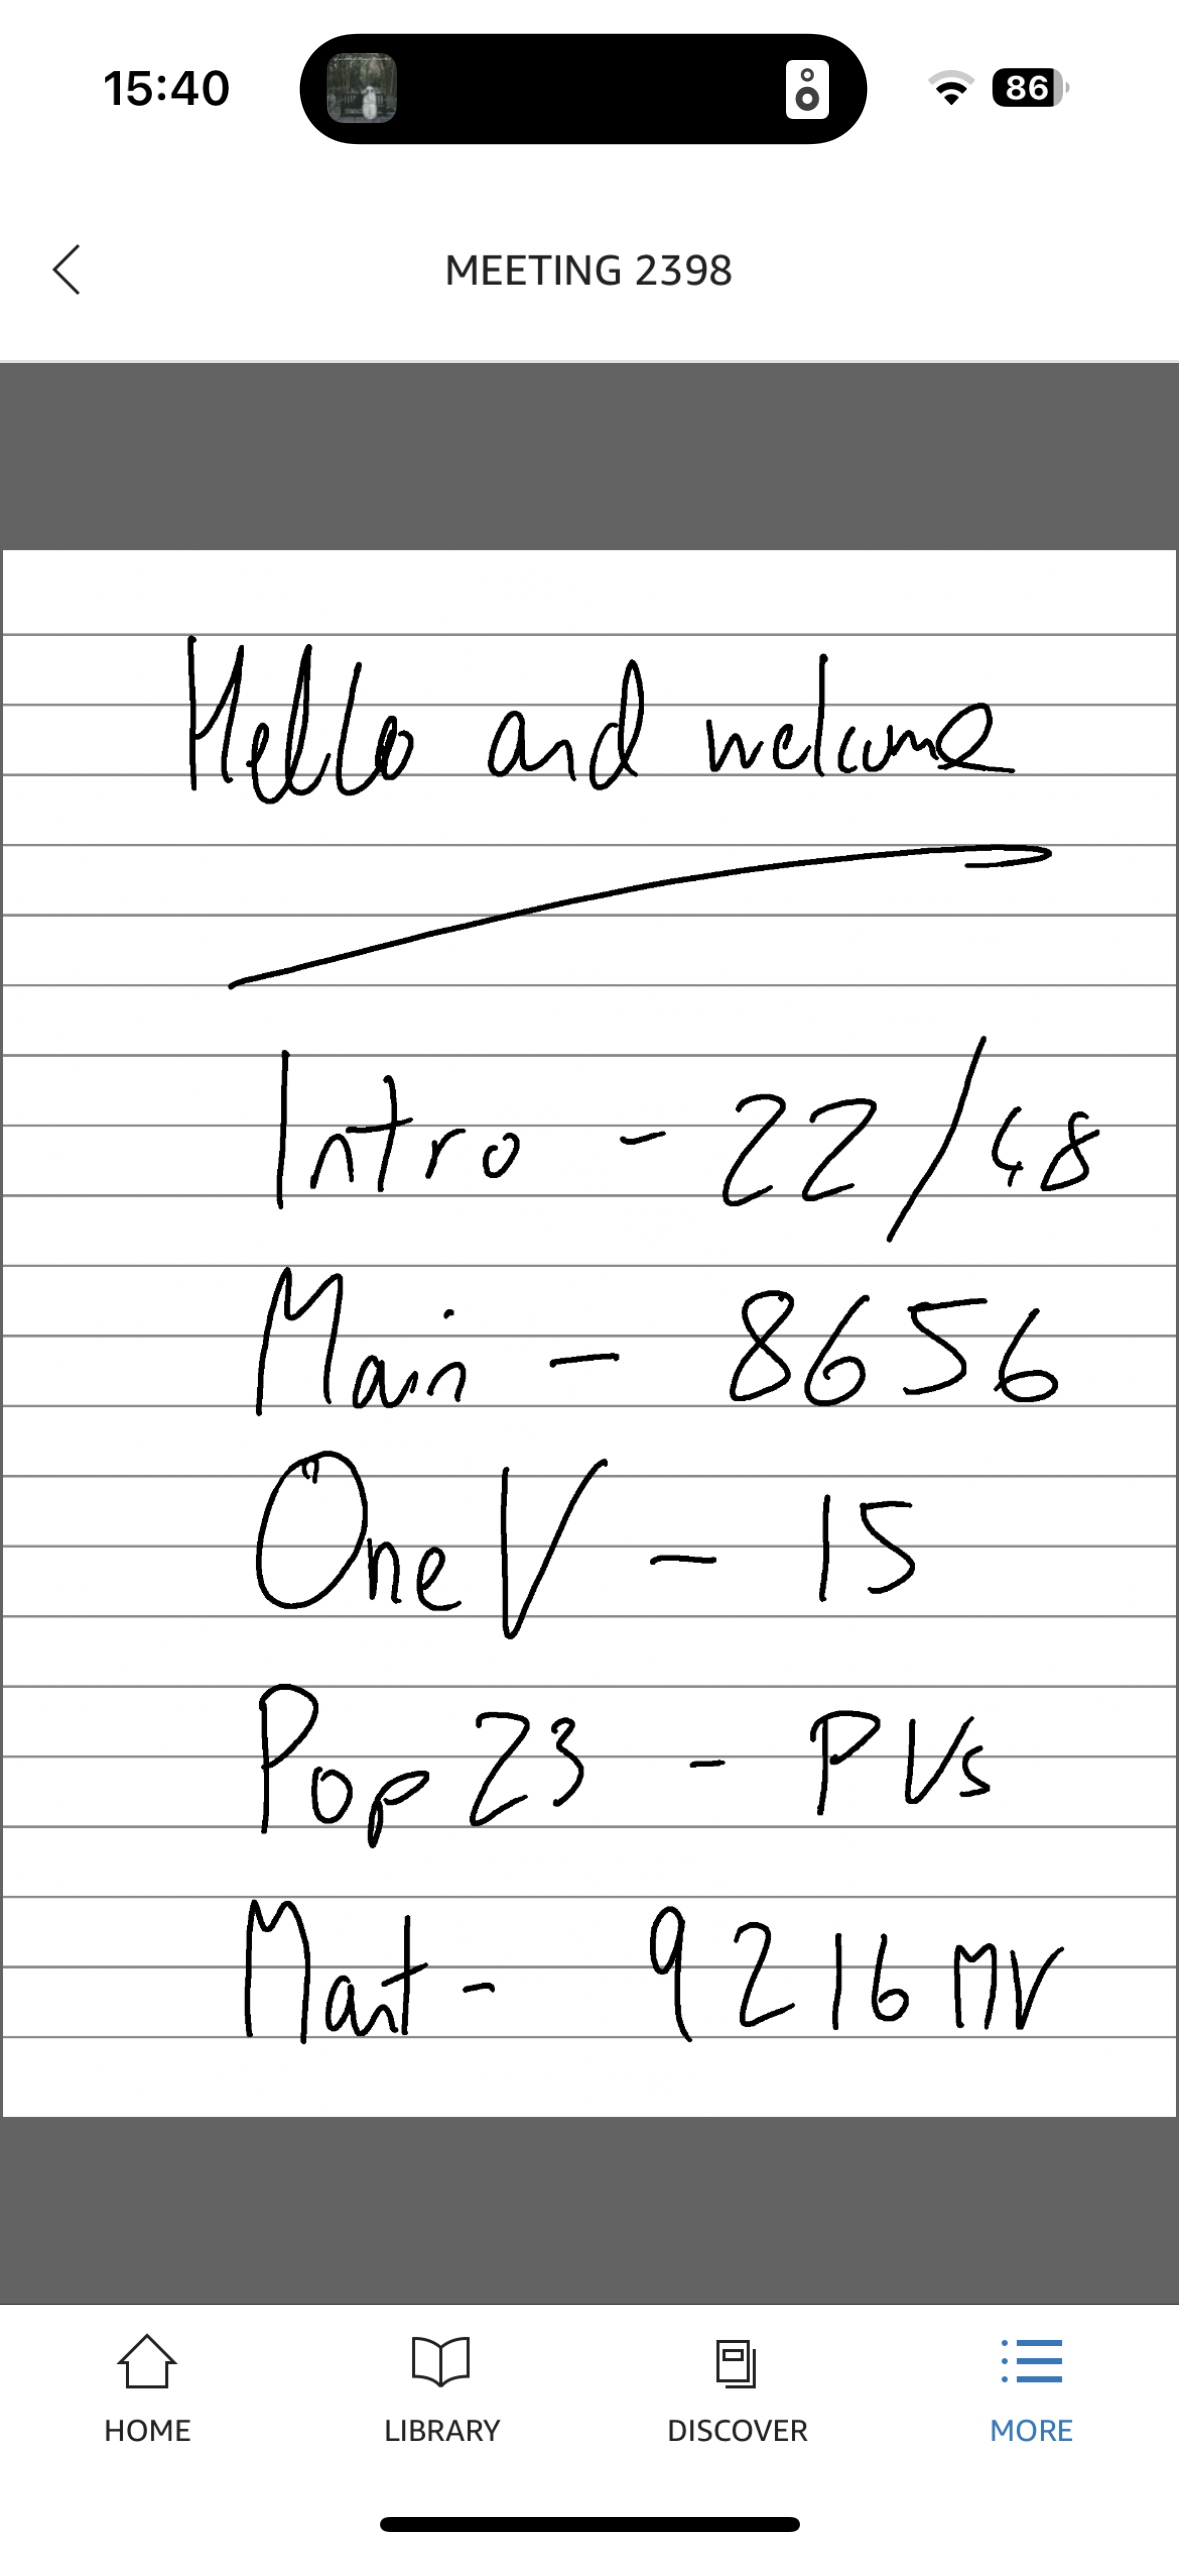 15:40
86
MEETING 2398
Hello and welcome
Intro - 22/48
Main - 8656
One V - 15
Pop 23 - PVs
Mant - 9216 MV
HOME LIBRARY DISCOVER MORE